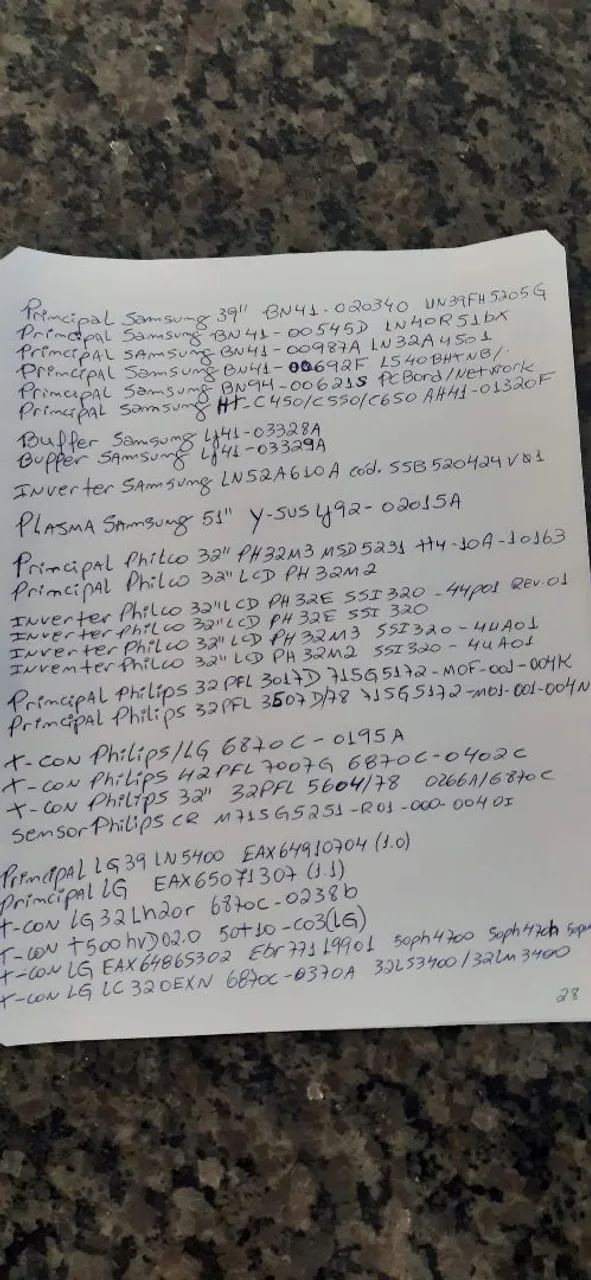 Principal Samsung 39" BN41-020340 UN39FH5205G
Principal Samsung BN41-00545D LN40R51bX
Principal Samsung BN41-00987A LN32A4501
Principal Samsung BN41-00692F LS40BHTNB/.
Principal Samsung BN94-00621S PCBord/Network
Principal Samsung HT-C450/C550/C650 AH41-01320F
Buffer Samsung Lj41-03328A
Buffer Samsung Lj41-03329A
Inverter Samsung LN52A610A cod. SSB520424V01
PLASMA Samsung 51" Y-SUS Lj92-02015A
Principal Philco 32" PH32M3 MSD5231 H4-10A-10163
Principal Philco 32" LCD PH 32M2
Inverter Philco 32" LCD PH 32E SSI 320-44P01 REV.01
Inverter Philco 32" LCD PH 32E SSI 320
Inverter Philco 32" LCD PH 32M3 SSI320-4UA01
Invemter Philco 32" LCD PH 32M2 SSI320-4UA01
Principal Philips 32PFL 3017D 715G5172-MOF-001-004K
Principal Philips 32PFL 3507D/78 715G5172-M01-001-004N
T-CON Philips/LG 6870C-0195A
T-CON Philips 42PFL7007G 6870C-0402C
T-CON Philips 32" 32PFL 5604/78 0266A/6870C
Sensor Philips CR M715G5251-R01-000-0040I
Principal LG 39LN5400 EAX64910704 (1.0)
Principal LG EAX65071307 (1.1)
T-CON LG 32Lh20r 6870C-0238b
T-CON T500hvD02.0 50T10-C03(LG)
T-CON LG EAX64865302 Ebr77119901 50ph4700 50ph470h
T-CON LG LC320EXN 6870C-0370A 32LS3400/32Lm3400
28